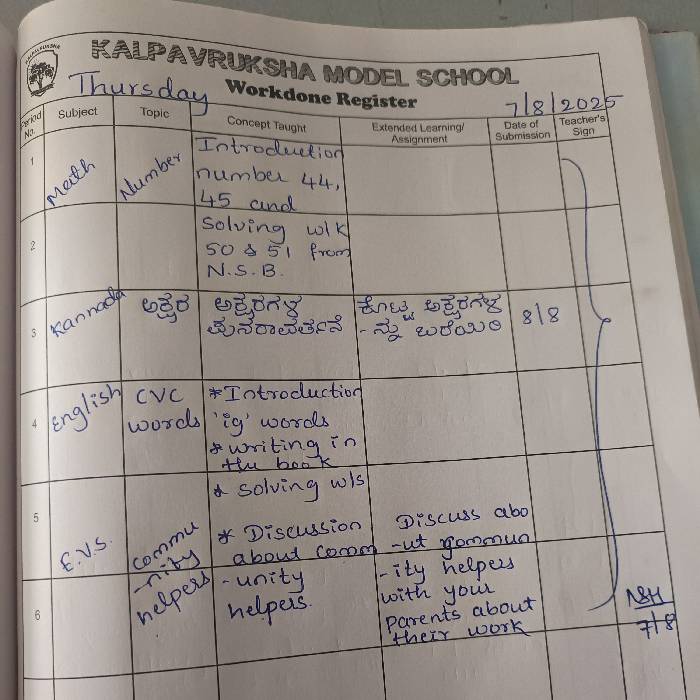 KALPAVRUKSHA
KALPAVRUKSHA MODEL SCHOOL
Thursday
Workdone Register
7/8/2025
Period No.
Subject
Topic
Concept Taught
Extended Learning/
Assignment
Date of
Submission
Teacher's
Sign
1
Math
Number
Introduction
number 44,
45 and
2
Solving w/k
50 & 51 from
N.S.B.
3
Kannada
ಅಕ್ಷರ
ಅಕ್ಷರಗಳ
ಪುನರಾವರ್ತನೆ
ಕೊಟ್ಟ ಅಕ್ಷರಗಳ
-ನ್ನು ಬರೆಯಿರಿ
8/8
4
English
CVC
words
*Introduction
'ig' words
* writing in
the book
5
* solving w/s
E.V.S.
commu
-nity
helpers
* Discussion
about comm
-unity
helpers.
Discuss abo
-ut commun
-ity helpers
with your
parents about
their work
6
7/8